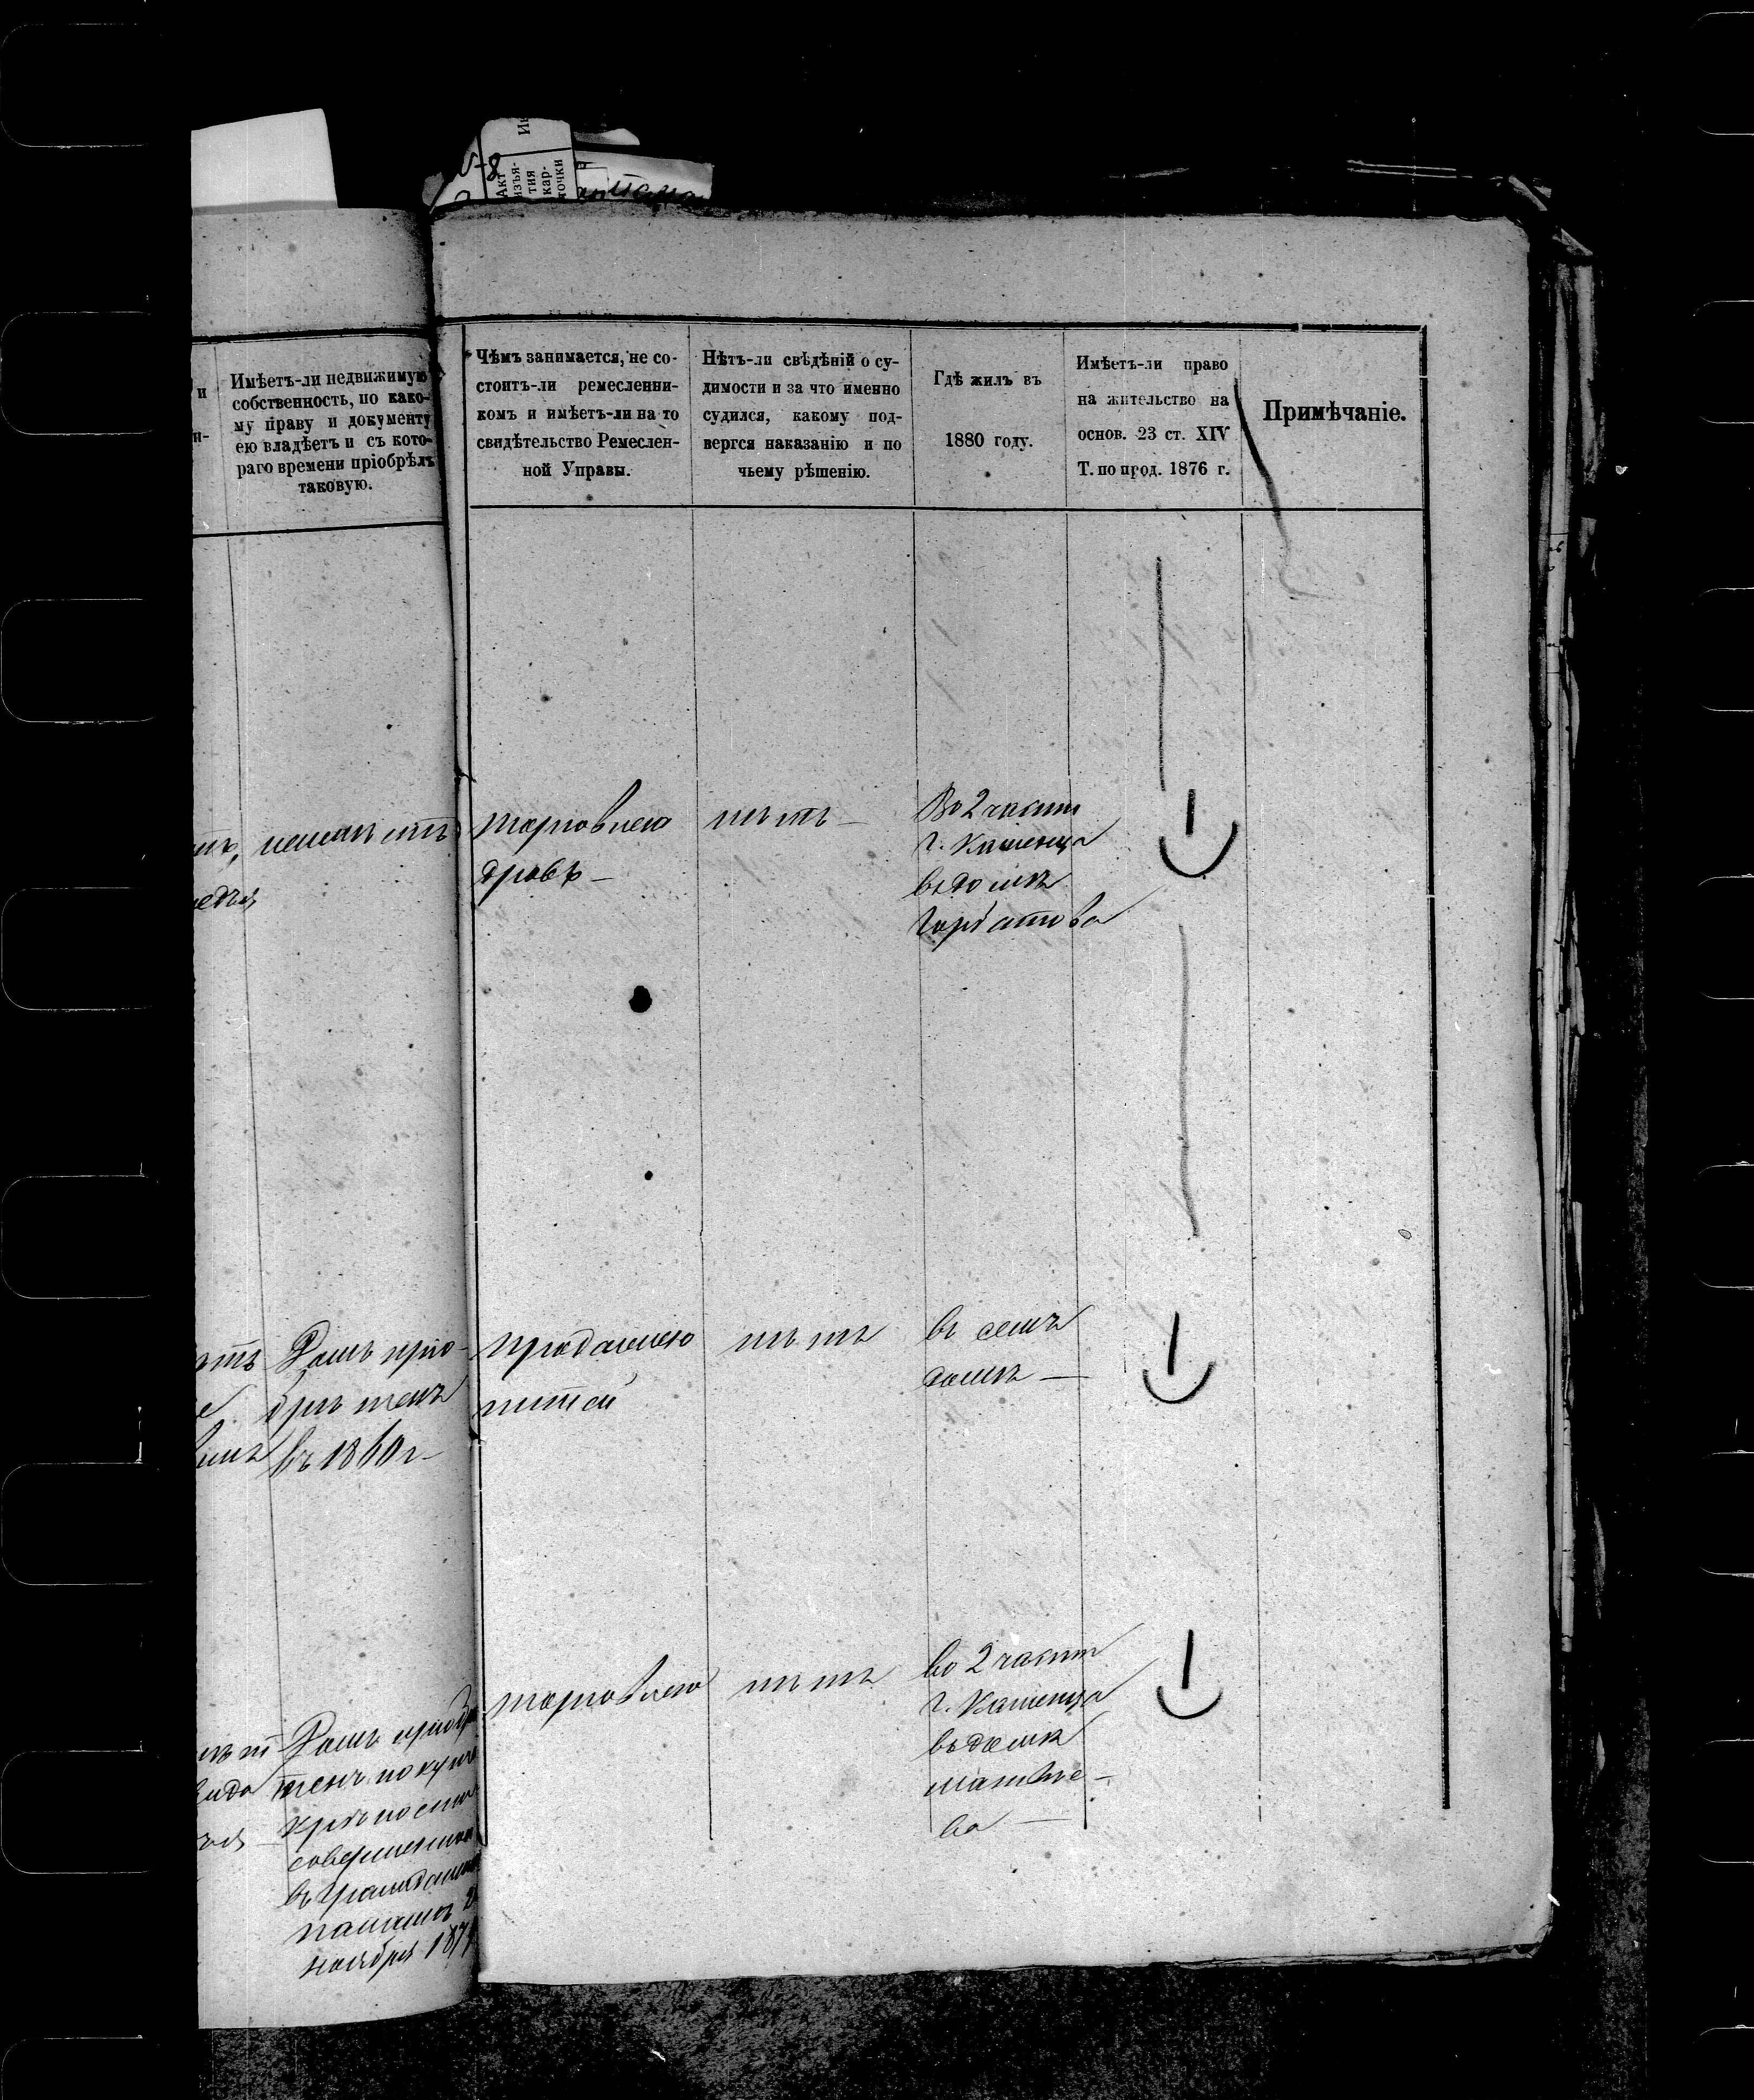 Акт
изъя-
тия
кар-
точки
и
Имѣетъ-ли недвижимую
собственность, по како-
му праву и документу
ею владѣетъ и съ кото-
раго времени пріобрѣлъ
таковую.
Чѣмъ занимается, не со-
стоитъ-ли ремесленни-
комъ и имѣетъ-ли на то
свидѣтельство Ремеслен-
ной Управы.
Нѣтъ-ли свѣдѣній о су-
димости и за что именно
судился, какому под-
вергся наказанію и по
чьему рѣшенію.
Гдѣ жилъ въ
1880 году.
Имѣетъ-ли право
на жительство на
основ. 23 ст. XIV
Т. по прод. 1876 г.
Примѣчаніе.
торговлею
дровъ
нѣтъ
Во 2 части
г. Каменца
въ домѣ
Горбатова
Домъ пріо-
брѣтенъ
въ 1860 г.
продажею
питей
нѣтъ
въ семъ
домѣ
Домъ пріобрѣ
тенъ по купчей
крѣпости
совершенной
въ Гражданской
палатѣ
ноября 187
торговлею
нѣтъ
во 2 части
г. Каменца
въ домѣ
Матвѣе-
ва